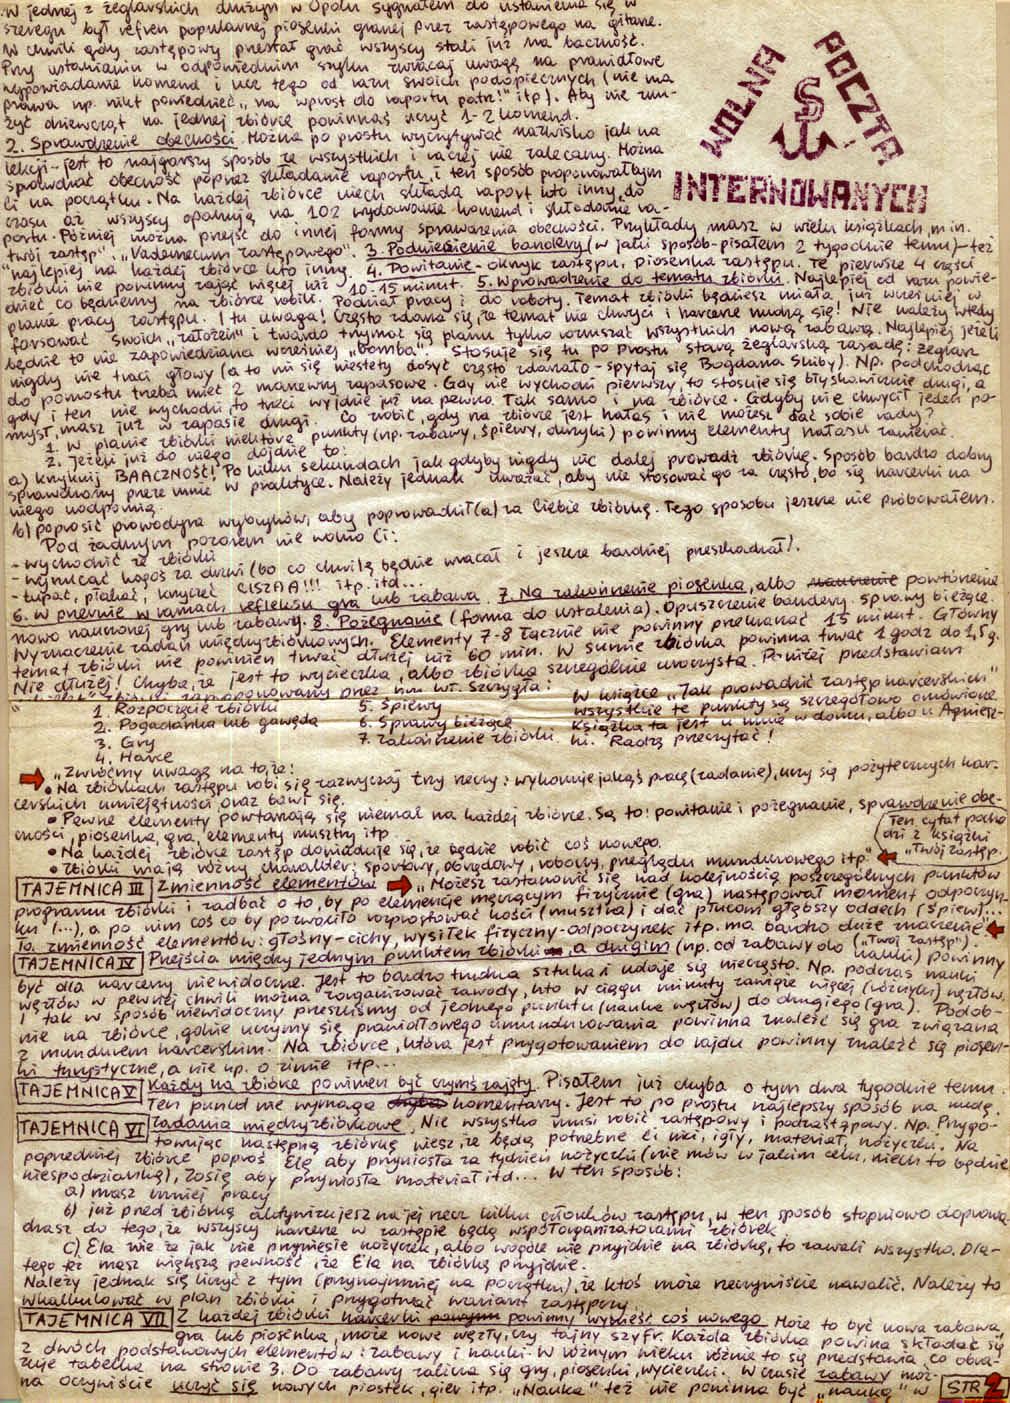 W jednej z żeglarskich drużyn w Opolu sygnałem do ustawienia się w
szeregu był refren popularnej piosenki granej przez zastępowego na gitarze.
W chwili gdy zastępowy przestał grać wszyscy stali już na baczność.
Przy ustawianiu w odpowiednim szyku zwracaj uwagę na prawidłowe
wypowiadanie komend i ucz tego od razu swoich podopiecznych (nie ma
prawa np. nikt powiedzieć „na wprost do raportu patrz!" itp). Aby nie znu-
żyć dziewcząt na jednej zbiórce powinnaś uczyć 1-2 komend.
2. Sprawdzenie obecności. Można po prostu wyczytywać nazwisko jak na
lekcji - jest to najgorszy sposób ze wszystkich i raczej nie zalecany. Można
sprawdzać obecność poprzez składanie raportu i ten sposób proponowałbym
Ci na początku. Na każdej zbiórce niech składa raport kto inny, do
czasu aż wszyscy opanują na 102 wydawanie komend i składanie ra-
portu. Później można przejść do innej formy sprawdzenia obecności. Przykłady masz w wielu książkach, m.in.
„Twój zastęp", „Vademecum zastępowego". 3. Podniesienie bandery (w jaki sposób - pisałem 2 tygodnie temu) - też
najlepiej na każdej zbiórce kto inny. 4. Powitanie - okrzyk zastępu, piosenka zastępu. Te pierwsze 4 części
zbiórki nie powinny zająć więcej niż 10-15 minut. 5. Wprowadzenie do tematu zbiórki. Najlepiej od razu powie-
dzieć co będziemy na zbiórce robili. Podział pracy i do roboty. Temat zbiórki będziesz miała już wcześniej w
planie pracy zastępu. I tu uwaga! Często zdarza się, że temat nie chwyci i harcerze nudzą się! Nie należy wtedy
forsować swoich „założeń" i twardo trzymać się planu tylko rozruszać wszystkich nową zabawą. Najlepiej jeżeli
będzie to nie zapowiedziana wcześniej „bomba". Stosuje się tu po prostu starą żeglarską zasadę: żeglarz
nigdy nie traci głowy (a to mi się niestety dosyć często zdarzało - spytaj się Bogdana Śliby). Np. podchodząc
do pomostu trzeba mieć 2 manewry zapasowe. Gdy nie wychodzi pierwszy, to stosuje się błyskawicznie drugi, a
gdy i ten nie wychodzi, to trzeci wyjdzie już na pewno. Tak samo i na zbiórce. Gdyby nie chwycił jeden po-
mysł, masz już w zapasie drugi. Co robić, gdy na zbiórce jest hałas i nie możesz dać sobie rady?
1. w planie zbiórki niektóre punkty (np. zabawy, śpiewy, okrzyki) powinny elementy hałasu zawierać.
2. Jeżeli już do niego dojdzie to:
a) krzyknij BAACZNOŚĆ! Po kilku sekundach jak gdyby nigdy nic dalej prowadź zbiórkę. Sposób bardzo dobry
sprawdzony przeze mnie w praktyce. Należy jednak uważać, aby nie stosować go za często, bo się harcerki na
niego uodpornią.
b) poprosić prowodyra wybryków, aby poprowadził(a) za Ciebie zbiórkę. Tego sposobu jeszcze nie próbowałem.
Pod żadnym pozorem nie wolno Ci:
- wychodzić ze zbiórki
- wyrzucać kogoś za drzwi (bo co chwilę będzie wracał i jeszcze bardziej przeszkadzał).
- tupać, płakać, krzyczeć CISZAA!!! itp. itd...
6. W przerwie w ramach refleksu gra lub zabawa. 7. Na zakończenie piosenka, albo powtórzenie
nowo nauczonej gry lub zabawy. 8. Pożegnanie (forma do ustalenia). Opuszczenie bandery. Sprawy bieżące.
Wyznaczenie zadań międzyzbiórkowych. Elementy 7-8 łącznie nie powinny przekraczać 15 minut. Główny
temat zbiórki nie powinien trwać dłużej niż 60 min. W sumie zbiórka powinna trwać 1 godz do 1,5 g.
Nie dłużej! Chyba, że jest to wycieczka, albo zbiórka szczególnie uroczysta. Poniżej przedstawiam
zbiórki zaproponowany przez hm Wł. Szczygła:
1. Rozpoczęcie zbiórki
2. Pogadanka lub gawęda
3. Gry
4. Harce
5. Śpiewy
6. Sprawy bieżące
7. Zakończenie zbiórki
W książce „Jak prowadzić zastęp harcerskich"
wszystkie te punkty są szczegółowo omówione
Książka ta jest u mnie w domu, albo u Agniesz-
ki. Radzę przeczytać!
„Zwróćmy uwagę na to, że:
• Na zbiórkach zastępu robi się zazwyczaj trzy rzeczy: wykonuje jakąś pracę (zadanie), uczy się pożytecznych har-
cerskich umiejętności oraz bawi się.
• Pewne elementy powtarzają się niemal na każdej zbiórce. Są to: powitanie i pożegnanie, sprawdzenie obe-
cności, piosenka, gra, elementy musztry itp.
• Na każdej zbiórce zastęp dowiaduje się, że będzie robić coś nowego.
• Zbiórki mają różny charakter: sportowy, obrzędowy, roboczy, przeglądu mundurowego itp."
Ten cytat pocho
dzi z książki
„Twój zastęp"
TAJEMNICA III Zmienność elementów „Możesz zastanowić się nad kolejnością poszczególnych punktów
programu zbiórki i zadbać o to, by po elemencie męczącym fizycznie (gra) następował moment odpoczyn-
ku (...), a po nim coś co by pozwoliło rozprostować kości (musztra) i dać płucom głębszy oddech (śpiew)...
To zmienność elementów: głośny-cichy, wysiłek fizyczny-odpoczynek itp. ma bardzo duże znaczenie"
("Twój zastęp").
TAJEMNICA IV Przejścia między jednym punktem zbiórki, a drugim (np. od zabawy do nauki) powinny
być dla harcerzy niewidoczne. Jest to bardzo trudna sztuka i udaje się nieczęsto. Np. podczas nauki
węzłów w pewnej chwili można zorganizować zawody, kto w ciągu minuty zawiąże więcej (różnych) węzłów.
I tak w sposób niewidoczny przeszliśmy od jednego punktu (nauka węzłów) do drugiego (gra). Podob-
nie na zbiórce, gdzie uczymy się prawidłowego umundurowania powinna znaleźć się gra związana
z mundurem harcerskim. Na zbiórce, która jest przygotowaniem do rajdu powinny znaleźć się piosen-
ki turystyczne, a nie np. o zimie itp...
TAJEMNICA V Każdy na zbiórce powinien być czymś zajęty. Pisałem już chyba o tym dwa tygodnie temu.
Ten punkt nie wymaga komentarzy. Jest to po prostu najlepszy sposób na nudę.
TAJEMNICA VI Zadania międzyzbiórkowe. Nie wszystko musi robić zastępowy i podzastępowy. Np. Przygo-
towując następną zbiórkę wiesz, że będą potrzebne Ci nici, igły, materiał, nożyczki. Na
poprzedniej zbiórce poproś Elę aby przyniosła za tydzień nożyczki (nie mów w jakim celu, niech to będzie
niespodzianką), Zosię aby przyniosła materiał itd... W ten sposób:
a) masz mniej pracy
b) już przed zbiórką aktywizujesz na jej rzecz kilku członków zastępu, w ten sposób stopniowo doprowa-
dzasz do tego, że wszyscy harcerze w zastępie będą współorganizatorami zbiórek.
c) Ela wie że jak nie przyniesie nożyczek, albo wogóle nie przyjdzie na zbiórkę, to zawali wszystko. Dla-
tego też masz większą pewność, że Ela na zbiórkę przyjdzie.
Należy jednak się liczyć z tym (przynajmniej na początku), że ktoś może rzeczywiście nawalić. Należy to
wkalkulować w plan zbiórki i przygotować wariant zastępczy.
TAJEMNICA VII Z każdej zbiórki harcerki powinny wynieść coś nowego. Może to być nowa zabawa,
gra lub piosenka, może nowe węzły, czy tajny szyfr. Każda zbiórka powinna składać się
z dwóch podstawowych elementów: zabawy i nauki. W różnym wieku różnie to się przedstawia, co obra-
zuje tabelka na stronie 3. Do zabawy zalicza się gry, piosenki, wycieczki. W czasie zabawy moż-
na oczywiście uczyć się nowych piosenek, gier itp. „Nauka" też nie powinna być „nauką" w
STR 2
WOLNA POCZTA
INTERNOWANYCH